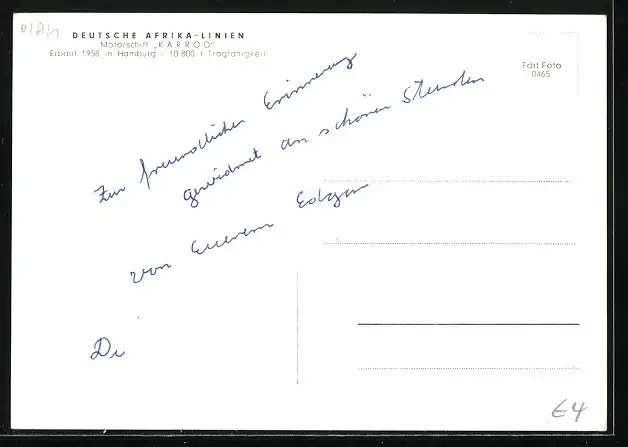 DEUTSCHE AFRIKA-LINIEN
Motorschiff „KARROO"
Erbaut 1958 in Hamburg · 10 800 t Tragfähigkeit
Echt Foto
0465
Zur freundlichen Erinnerung
gewidmet an schönen Stunden
von Eurem Edgar
€4